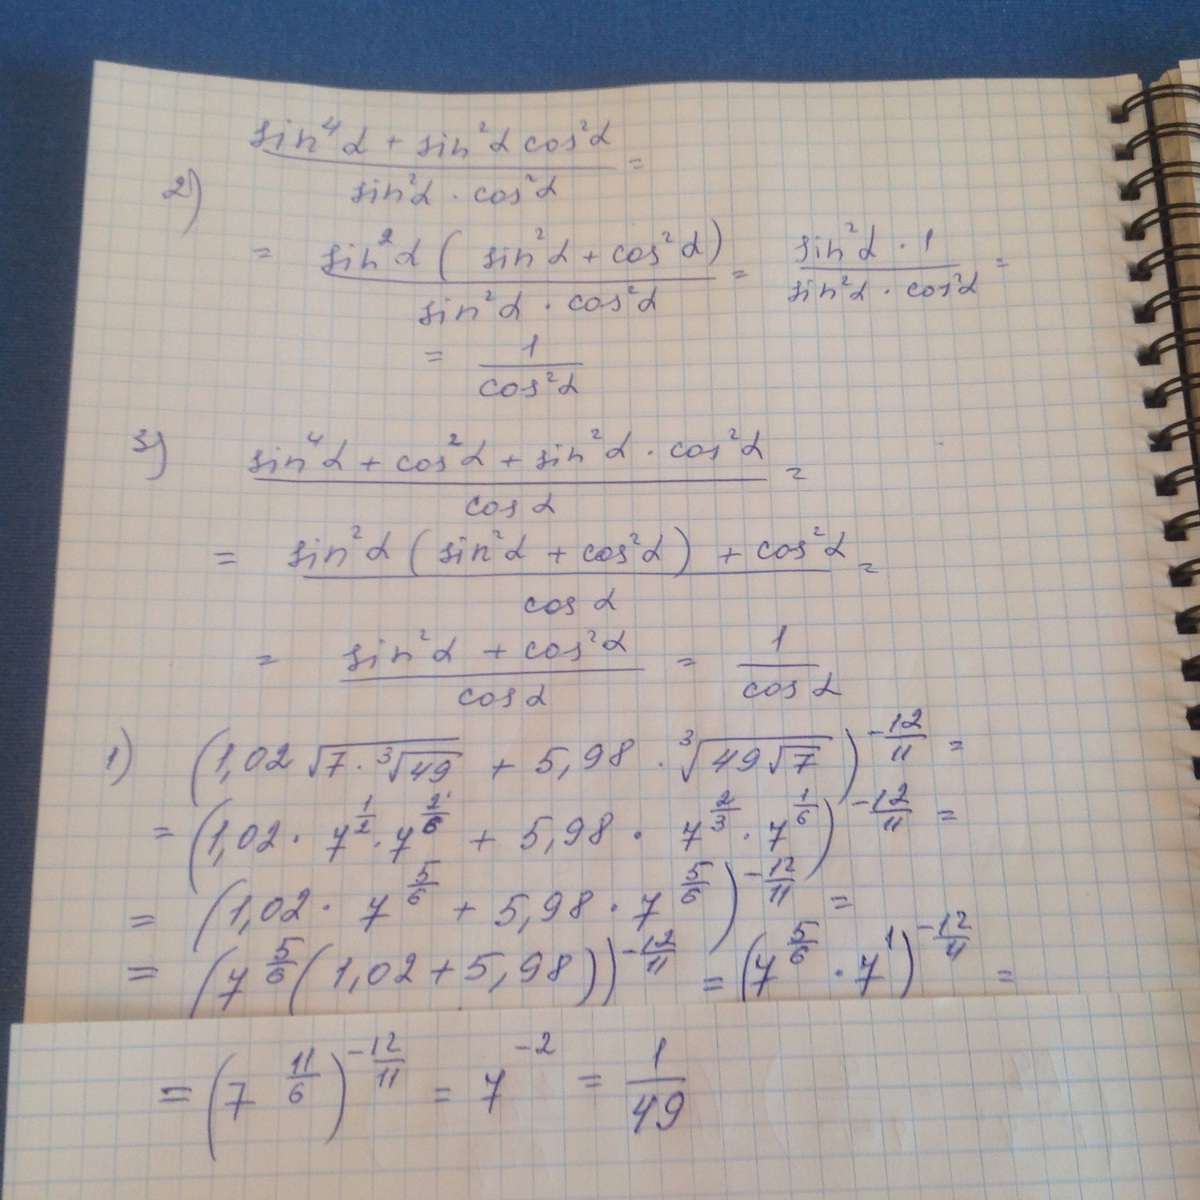 2) (sin⁴α + sin²α cos²α)/(sin²α · cos²α) =
= (sin²α (sin²α + cos²α))/(sin²α · cos²α) = (sin²α · 1)/(sin²α · cos²α) =
= 1/(cos²α)
3) (sin⁴α + cos²α + sin²α · cos²α)/(cos α) =
= (sin²α (sin²α + cos²α) + cos²α)/(cos α) =
= (sin²α + cos²α)/(cos α) = 1/(cos α)
1) (1,02 √(7 · ³√49) + 5,98 · ³√(49√7))^(-12/11) =
= (1,02 · 7^(1/2) · 7^(2/6) + 5,98 · 7^(2/3) · 7^(1/6))^(-12/11) =
= (1,02 · 7^(5/6) + 5,98 · 7^(5/6))^(-12/11) =
= (7^(5/6) (1,02 + 5,98))^(-12/11) = (7^(5/6) · 7^1)^(-12/11) =
= (7^(11/6))^(-12/11) = 7^(-2) = 1/49